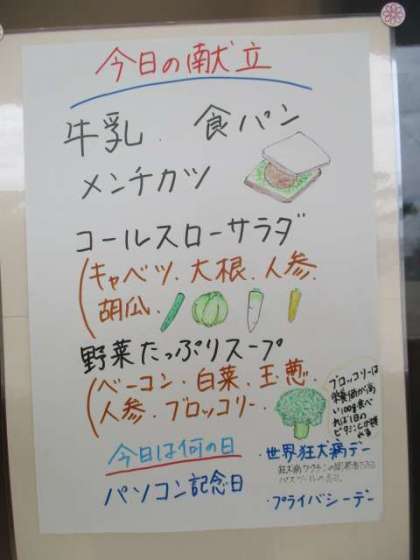 今日の献立
牛乳. 食パン
メンチカツ
コールスローサラダ
(キャベツ. 大根. 人参.
胡瓜.
野菜たっぷりスープ
(ベーコン. 白菜. 玉葱.
人参. ブロッコリー.
ブロッコリーは
栄養価が高
い100g食べ
れば1日の
ビタミンCが摂
れる
今日は何の日
パソコン記念日
・世界狂犬病デー
狂犬病ワクチンの
パスツールの命日
・プライバシーデー